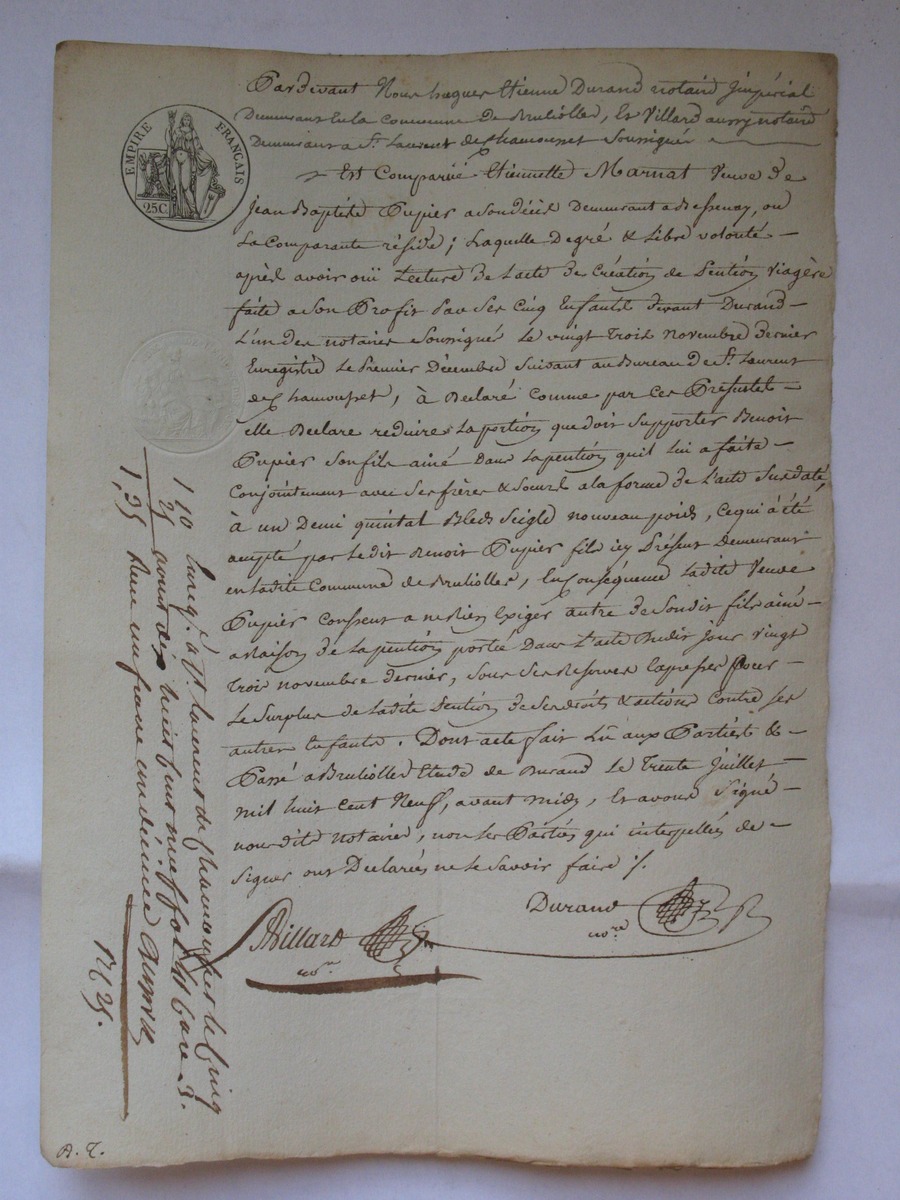 EMPIRE FRANÇAIS
25C.
Pardevant Nous Jacques Etienne Durand notaire Jmpérial
Demeurant En la Commune de Brulliolles, Et Villard aussy notaire
Demeurant a St. Laurent de Chamousset Soussignés
Est Comparüe Etiennette Marnat Veuve de
Jean Baptiste Pupier a Son décès Demeurant a Bessenay, ou
La Comparante réside ; Laquelle De gré & Libre volonté
après avoir oüi Lecture de L'acte de Création de Pention Viagère
faite a Son Profit Par Ses Cinq Enfants devant Durand
L'un des notaires Soussignés Le vingt trois novembre dernier
Enregistré Le Premier Décembre Suivant au Bureau de St. Laurent
de Chamousset, à Déclaré comme par Ces Présentes
elle Déclare reduire La portion que doit Supporter Benoit
Pupier Son fils ainé Dans La pention qu'il Lui a faite
Conjointement avec Ses frères & Soeurs a la forme de L'acte Susdaté,
à un Demi quintal Bled Seigle nouveau poids, Ce qui à été
accepté par Le dit Benoit Pupier fils icy Présent Demeurant
en Ladite Commune de Brulliolles, En Conséquence Ladite Veuve
Pupier Consent a ne Rien Exiger autre de Son dit fils ainé
a Raison de La pention portée Dans L'acte Du dit jour vingt
trois novembre dernier, Sous Ses Reserves Expresses Pour
Le Surplus de Ladite Pention de Ses droits & actions Contre Ses
autres Enfants. Dont acte fait Lû aux Parties &
Passé a Brulliolles Etude de Durand Le Trente Juillet
mil huit Cent Neuf, avant midy, Et avons Signé
nous dits notaires, non Les Parties qui interpellées de
Signer ont Déclarés ne le Savoir faire ./.
Durand
nore
Villard
nore
Enrég. à St. Laurent de Chamousset le Cinq
aout dix huit cent neuf fol. Case 3.
Reçu un franc un décime
1 10
25
1,35
R 25.
A. T.